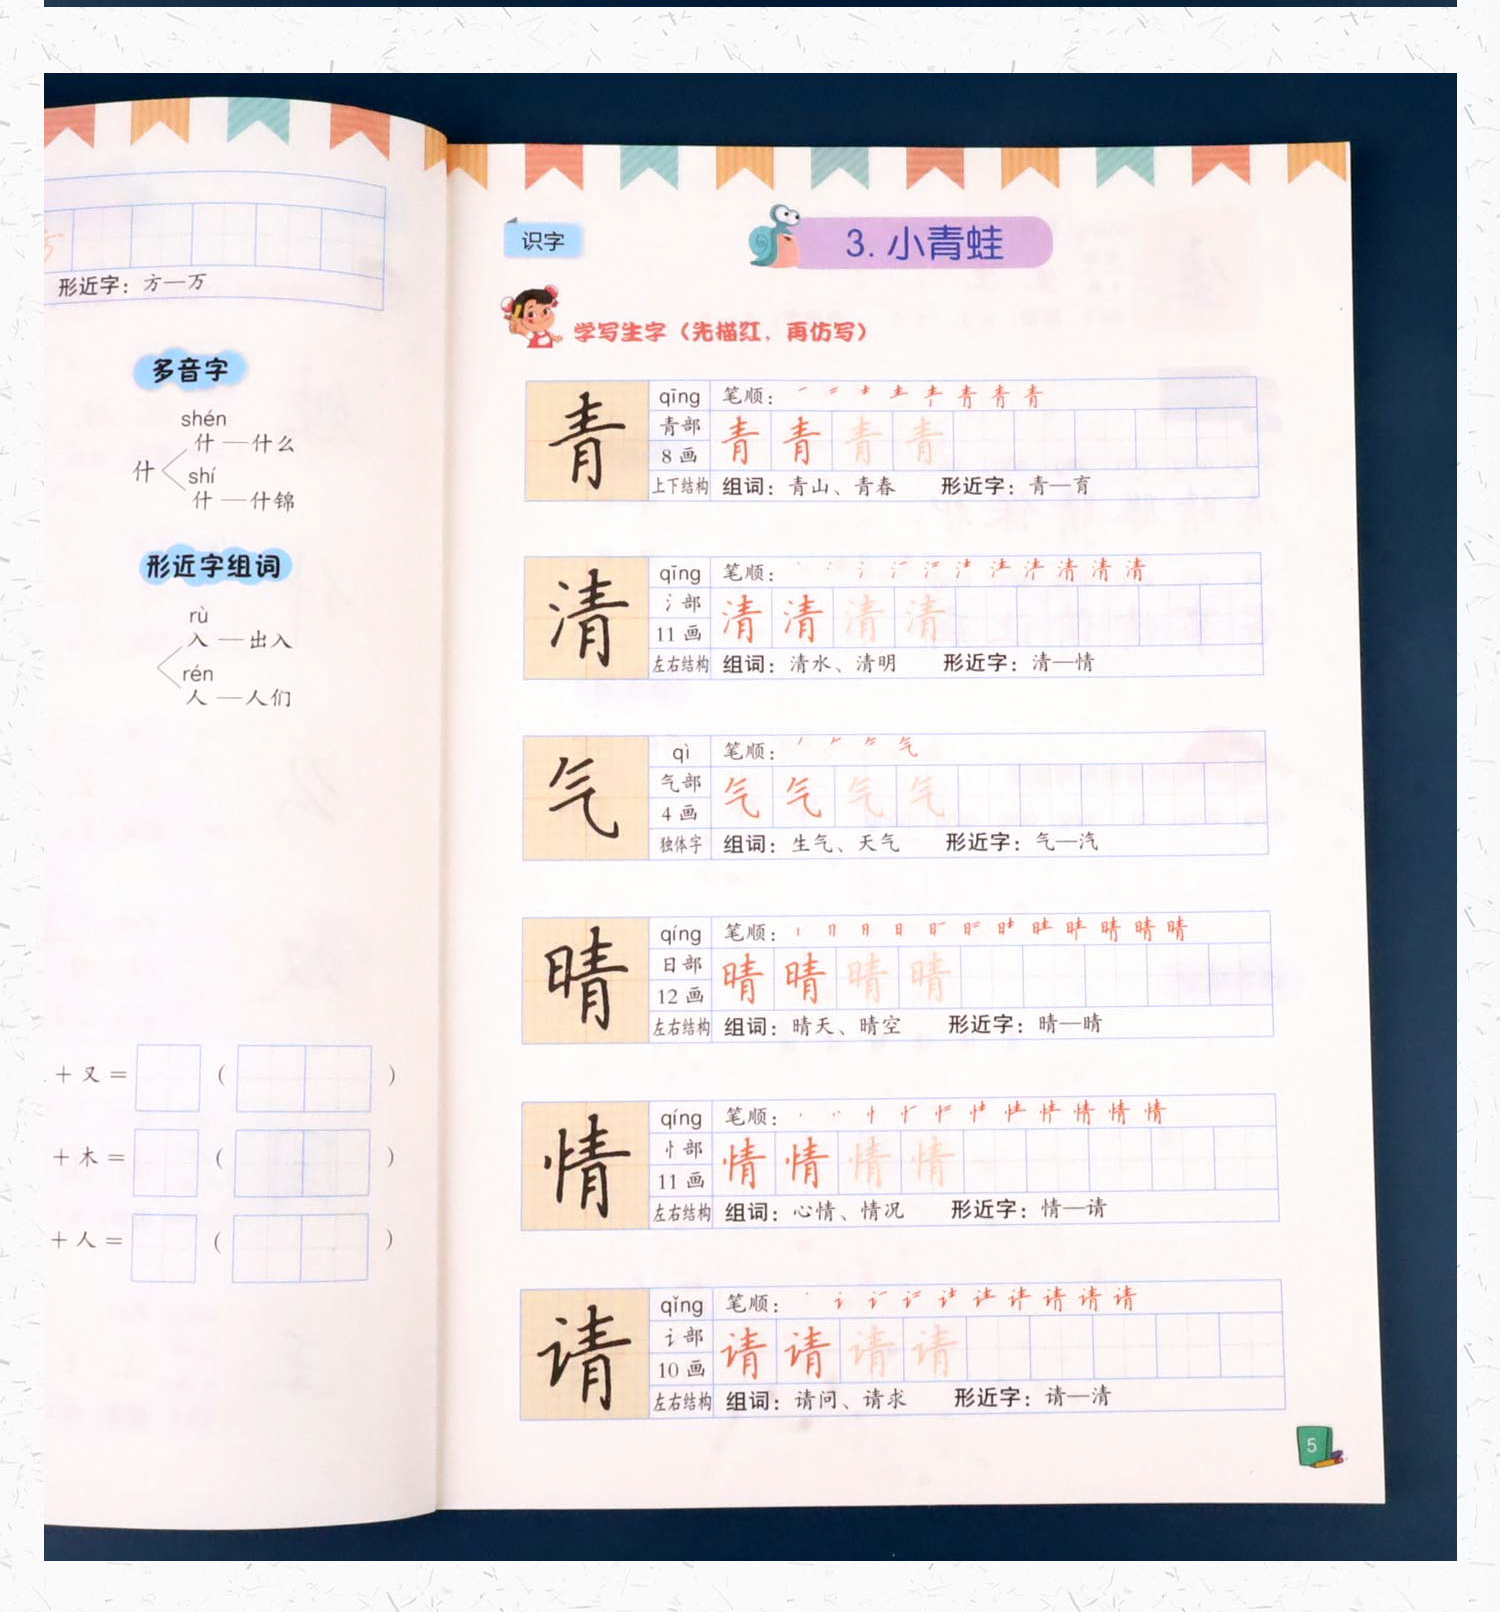 形近字：方—万
多音字
shén
什—什么
什
shí
什—什锦
形近字组词
rù
入—出入
rén
人—人们
+又= ( )
+木= ( )
+人= ( )
识字
3. 小青蛙
学写生字（先描红，再仿写）
青 qīng 笔顺：
青部 青 青 青 青
8画
上下结构 组词：青山、青春 形近字：青—育
清 qīng 笔顺：
氵部 清 清 清 清
11画
左右结构 组词：清水、清明 形近字：清—情
气 qì 笔顺：
气部 气 气 气 气
4画
独体字 组词：生气、天气 形近字：气—汽
晴 qíng 笔顺：
日部 晴 晴 晴 晴
12画
左右结构 组词：晴天、晴空 形近字：晴—睛
情 qíng 笔顺：
忄部 情 情 情 情
11画
左右结构 组词：心情、情况 形近字：情—请
请 qǐng 笔顺：
讠部 请 请 请 请
10画
左右结构 组词：请问、请求 形近字：请—清
5